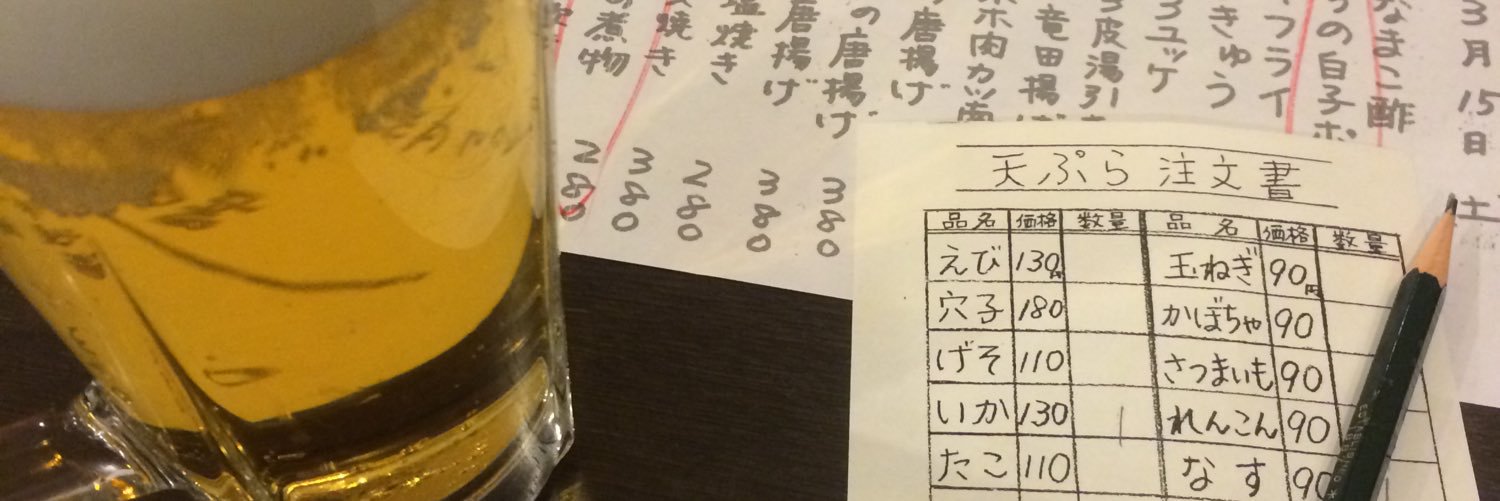 3月15日 土
なまこ酢
の白子ポ
フライ
きゅう
ユッケ
皮湯引き
竜田揚げ
ホ肉カツ
唐揚げ
の唐揚げ 380
唐揚げ 380
塩焼き 280
焼き 380
煮物 280
天ぷら 注文書
品名 価格 数量 品名 価格 数量
えび 130円 玉ねぎ 90円
穴子 180 かぼちゃ 90
げそ 110 さつまいも 90
いか 130 1 れんこん 90
たこ 110 なす 90